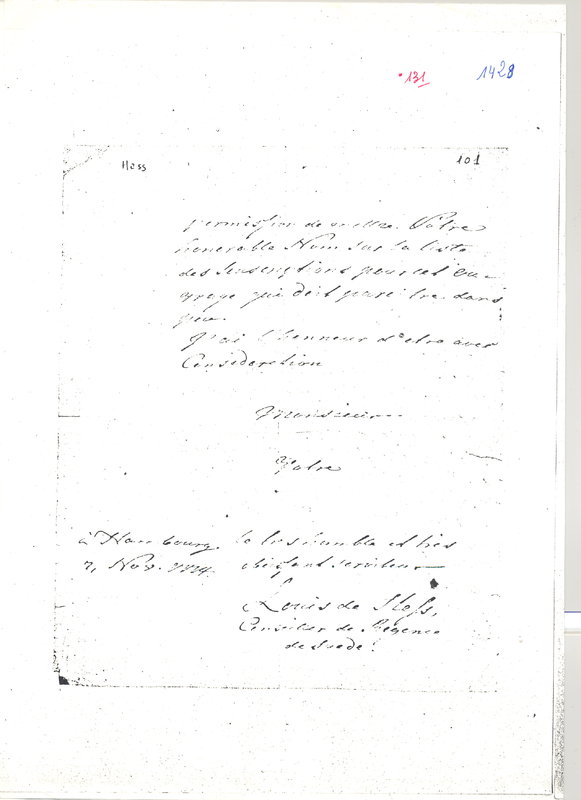 131 1428
Hess 101
permission de mettre Votre
honorable Nom sur la liste
des Souscriptions pour cet Ou-
qui doit paroitre dans
peu.
J'ai l'honneur d'etre avec
Consideration
Monsieur
Votre
à Hambourg le tres humble et tres
Nov. obeissant serviteur
Louis de Hess,
Conseiller de Régence
de Suede.